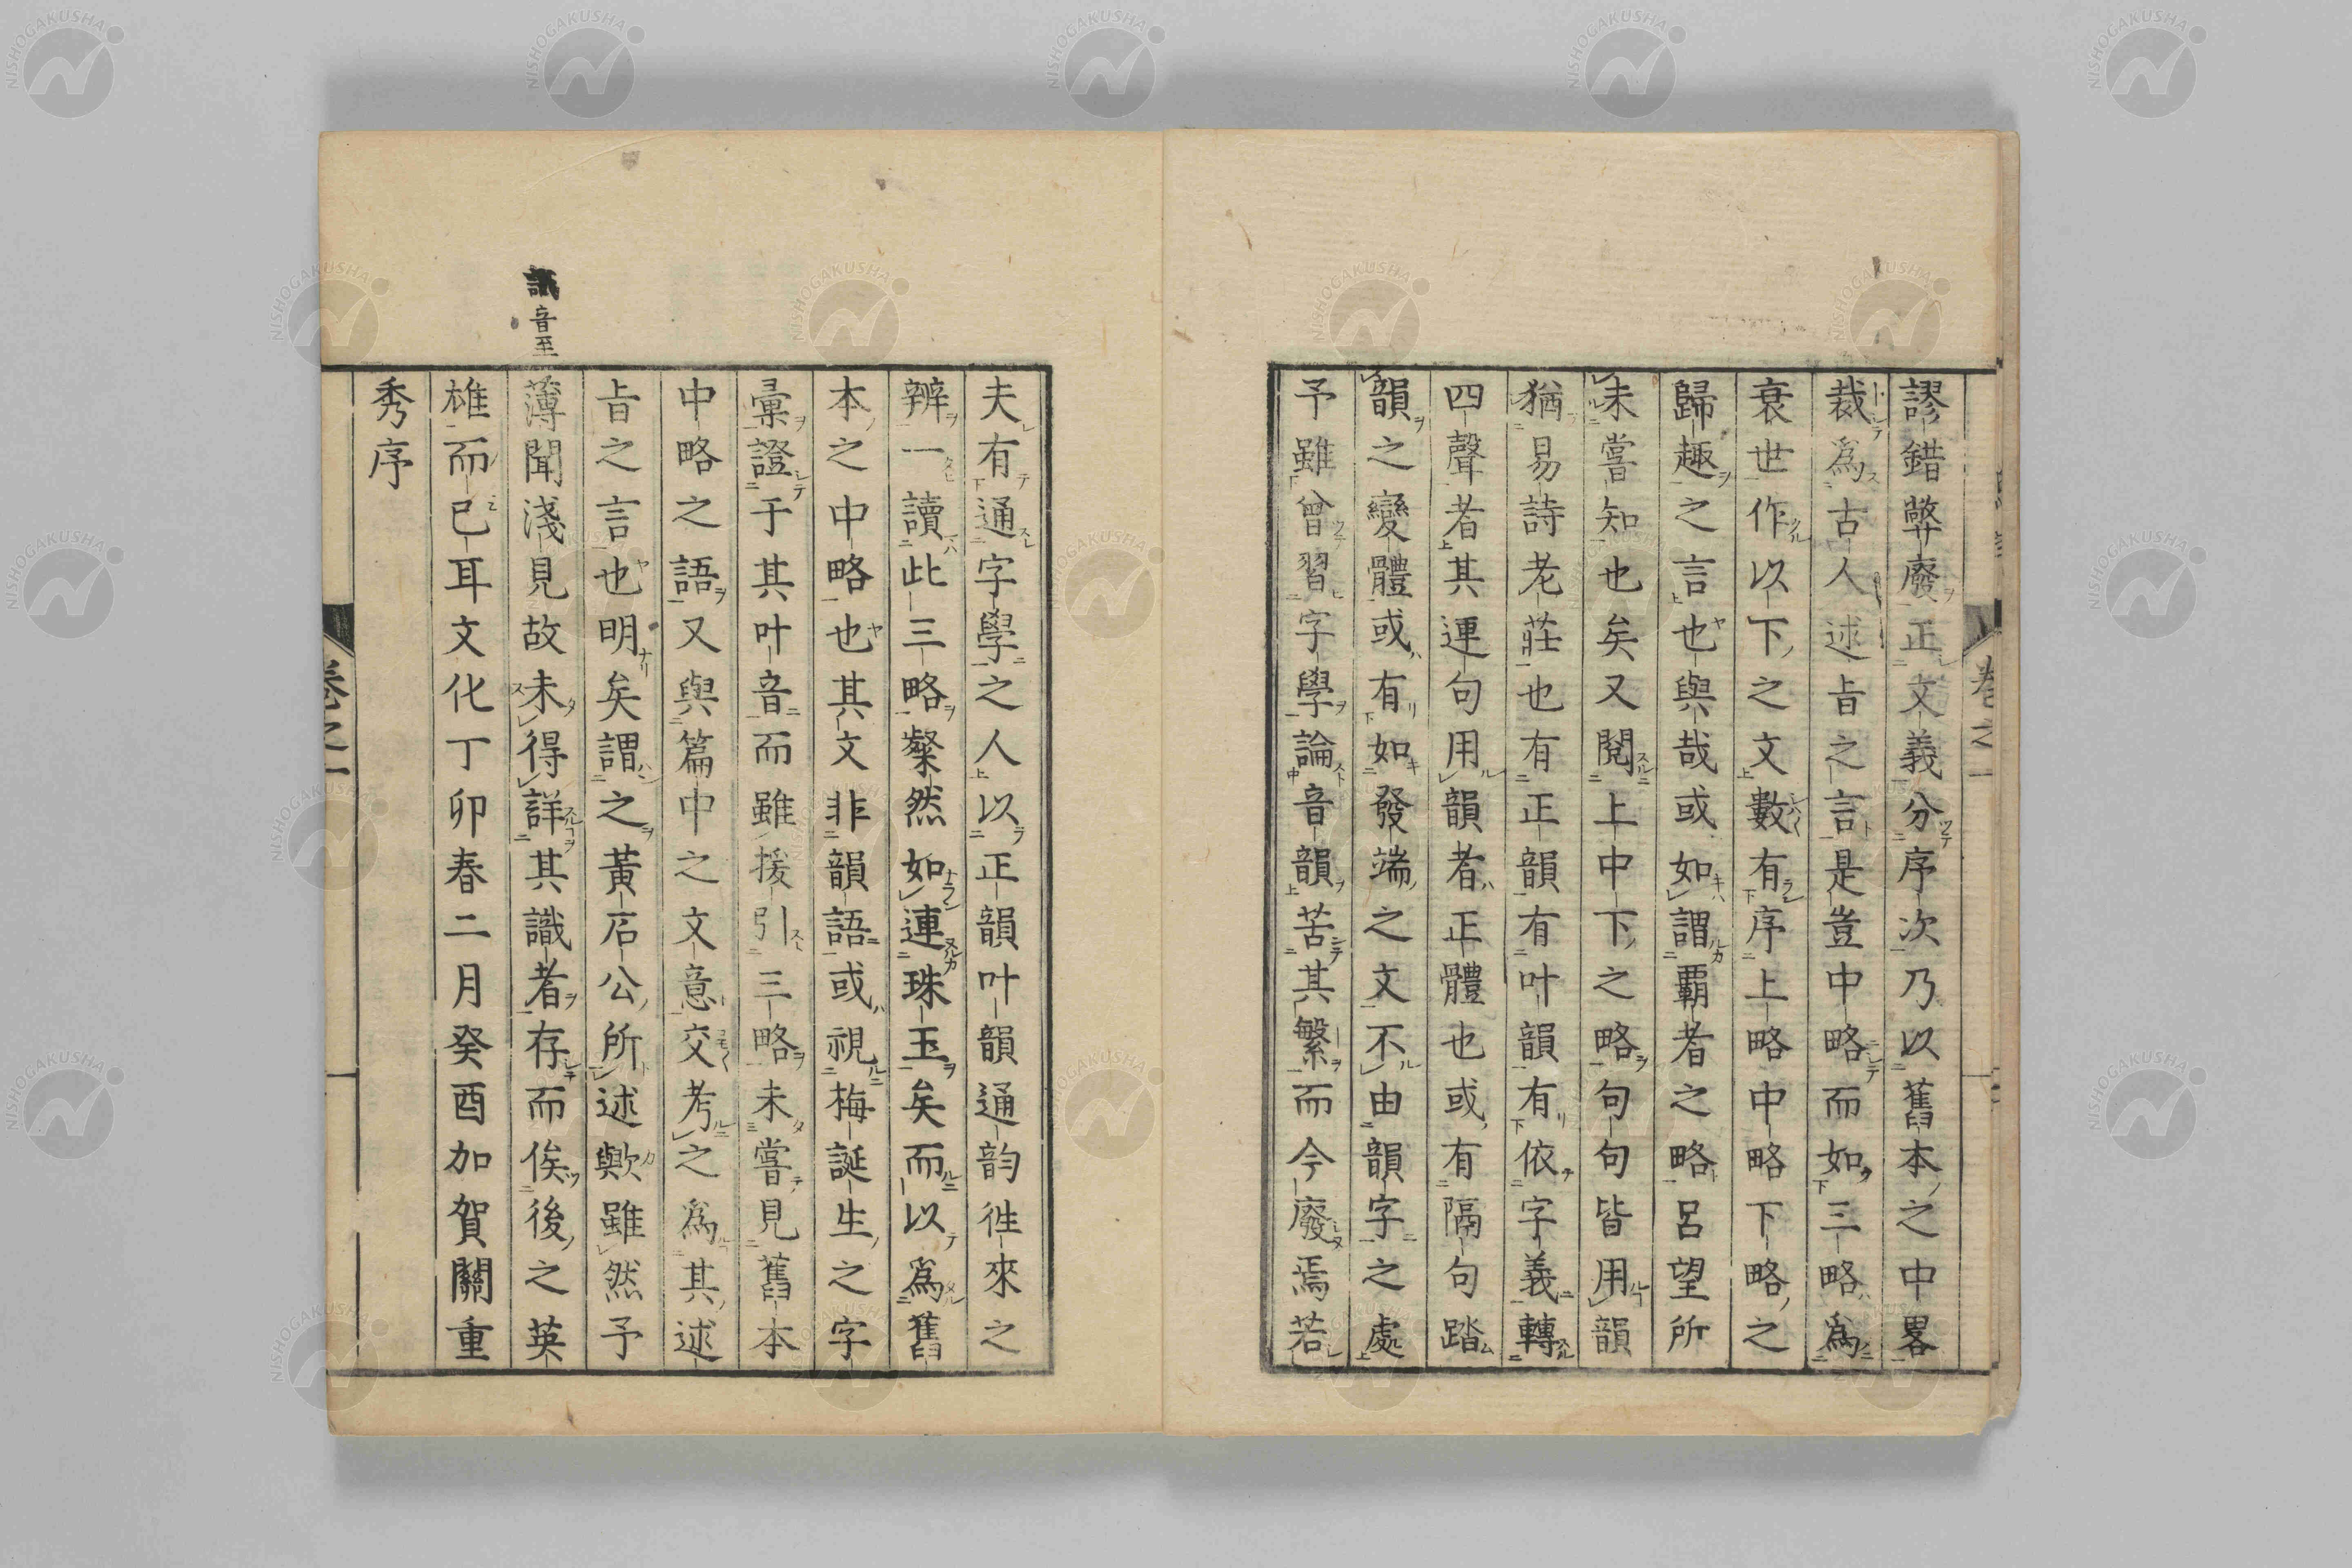 謬錯弊廢正文義分序次乃以舊本之中畧
裁爲古人述㫖之言是豈中略而如三略爲
衰世作以下之文數有序上略中略下略之
歸趣之言也與哉或如謂覇者之略呂望所
未嘗知也矣又閱上中下之略句句皆用韻
猶易詩老莊也有正韻有叶韻有依字義轉
四聲者其連句用韻者正體也或有隔句踏
韻之變體或有如發端之文不由韻字之處
予雖曾習字學論音韻苦其繁而今廢焉若
夫有通字學之人以正韻叶韻通韵徃來之
辨一讀此三略粲然如連珠玉矣而以爲舊
本之中略也其文非韻語或視梅誕生之字
彙證于其叶音而雖援引三略未嘗見舊本
中略之語又與篇中之文意交考之爲其述
㫖之言也明矣謂之黃石公所述歟雖然予
薄聞淺見故未得詳其識者存而俟後之英
雄而已耳文化丁卯春二月癸酉加賀關重
秀序
識音至
卷之一
卷之一
NISHOGAKUSHA